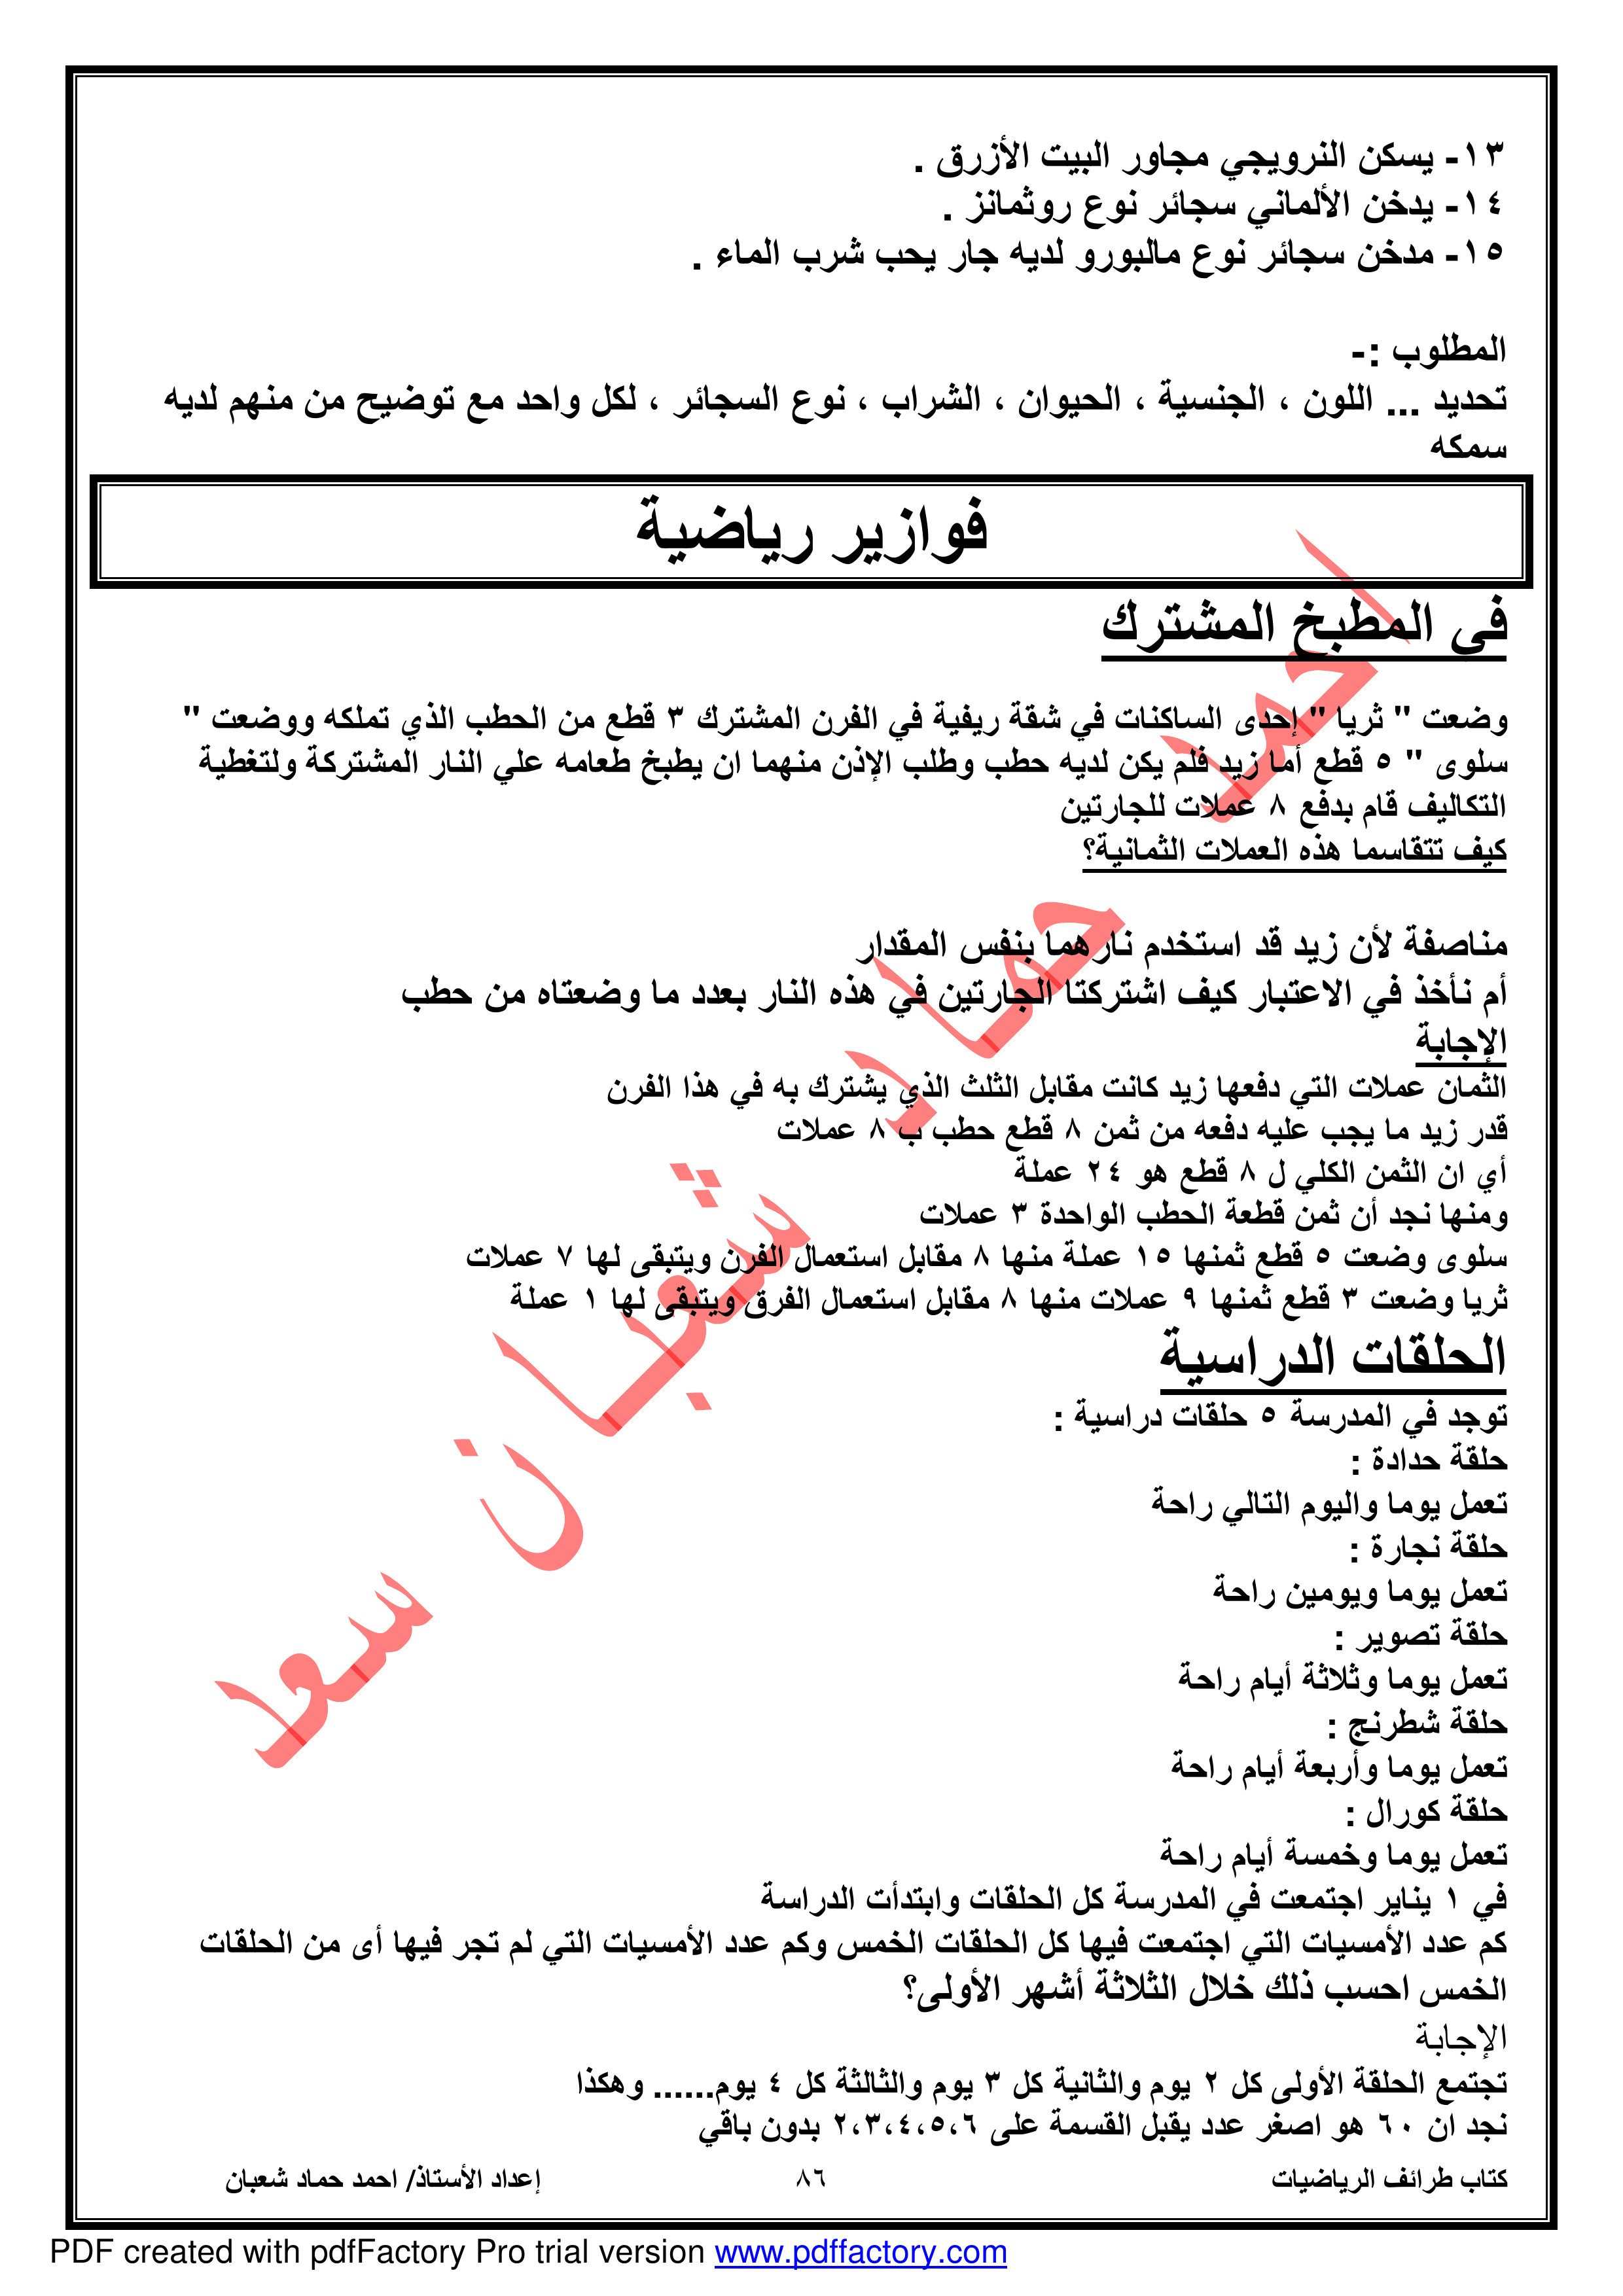 ١٣- يسكن النرويجي مجاور البيت الأزرق .
١٤- يدخن الألماني سجائر نوع روثمانز .
١٥- مدخن سجائر نوع مالبورو لديه جار يحب شرب الماء .
المطلوب :-
تحديد ... اللون ، الجنسية ، الحيوان ، الشراب ، نوع السجائر ، لكل واحد مع توضيح من منهم لديه
سمكه
فوازير رياضية
في المطبخ المشترك
وضعت " ثريا " إحدى الساكنات في شقة ريفية في الفرن المشترك ٣ قطع من الحطب الذي تملكه ووضعت "
سلوى " ٥ قطع أما زيد فلم يكن لديه حطب وطلب الإذن منهما ان يطبخ طعامه علي النار المشتركة ولتغطية
التكاليف قام بدفع ٨ عملات للجارتين
كيف تتقاسما هذه العملات الثمانية؟
مناصفة لأن زيد قد استخدم نارهما بنفس المقدار
أم نأخذ في الاعتبار كيف اشتركتا الجارتين في هذه النار بعدد ما وضعتاه من حطب
الإجابة
الثمان عملات التي دفعها زيد كانت مقابل الثلث الذي يشترك به في هذا الفرن
قدر زيد ما يجب عليه دفعه من ثمن ٨ قطع حطب ب ٨ عملات
أي ان الثمن الكلي ل ٨ قطع هو ٢٤ عملة
ومنها نجد أن ثمن قطعة الحطب الواحدة ٣ عملات
سلوى وضعت ٥ قطع ثمنها ١٥ عملة منها ٨ مقابل استعمال الفرن ويتبقى لها ٧ عملات
ثريا وضعت ٣ قطع ثمنها ٩ عملات منها ٨ مقابل استعمال الفرق ويتبقى لها ١ عملة
الحلقات الدراسية
توجد في المدرسة ٥ حلقات دراسية :
حلقة حدادة :
تعمل يوما واليوم التالي راحة
حلقة نجارة :
تعمل يوما ويومين راحة
حلقة تصوير :
تعمل يوما وثلاثة أيام راحة
حلقة شطرنج :
تعمل يوما وأربعة أيام راحة
حلقة كورال :
تعمل يوما وخمسة أيام راحة
في ١ يناير اجتمعت في المدرسة كل الحلقات وابتدأت الدراسة
كم عدد الأمسيات التي اجتمعت فيها كل الحلقات الخمس وكم عدد الأمسيات التي لم تجر فيها أى من الحلقات
الخمس احسب ذلك خلال الثلاثة أشهر الأولى؟
الإجابة
تجتمع الحلقة الأولى كل ٢ يوم والثانية كل ٣ يوم والثالثة كل ٤ يوم...... وهكذا
نجد ان ٦٠ هو اصغر عدد يقبل القسمة على ٢،٣،٤،٥،٦ بدون باقي
كتاب طرائف الرياضيات ٨٦ إعداد الأستاذ/ احمد حماد شعبان
احمد حماد شعبان سعد
PDF created with pdfFactory Pro trial version www.pdffactory.com